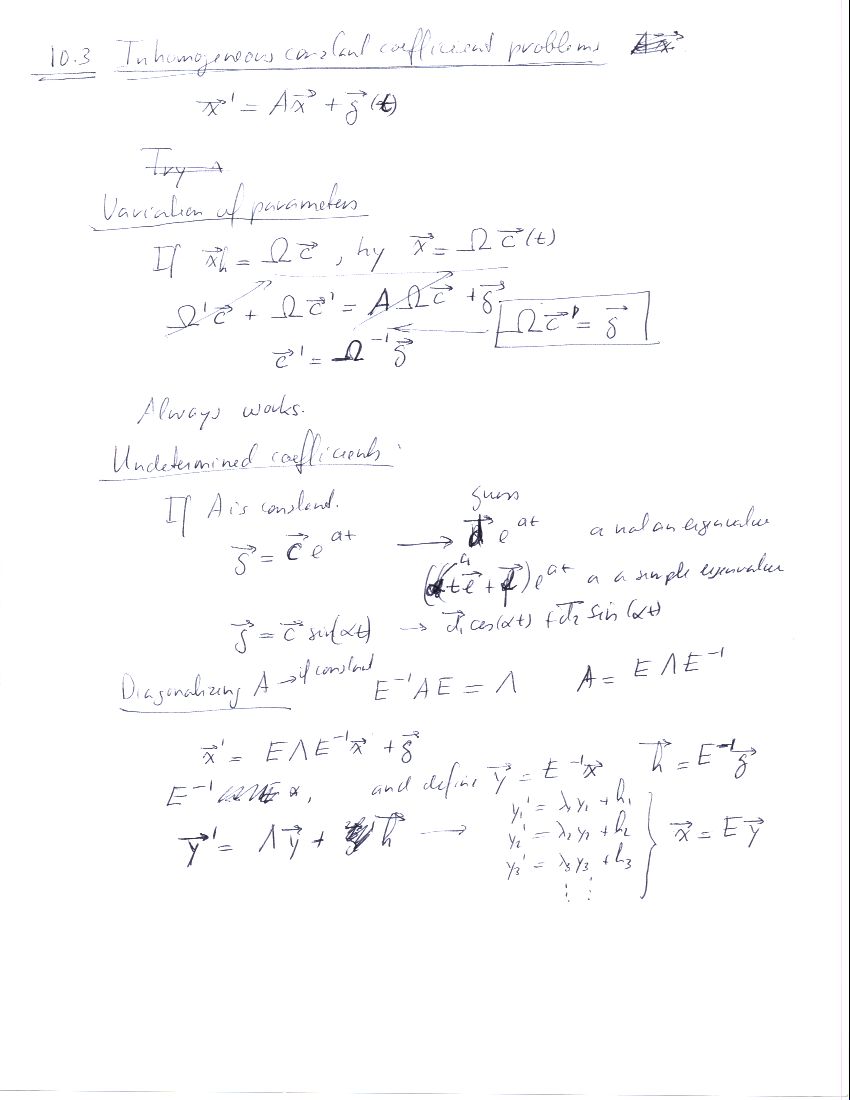 10.3 Inhomogeneous constant coefficient problems
x⃗' = Ax⃗ + g⃗(t)
Try
Variation of parameters
If x⃗h = Ωc⃗, try x⃗ = Ωc⃗(t)
Ω'c⃗ + Ωc⃗' = AΩc⃗ + g⃗
Ωc⃗' = g⃗
c⃗' = Ω⁻¹g⃗
Always works.
Undetermined coefficients:
If A is constant.
guess
g⃗ = c⃗e^{at} → d⃗e^{at} a not an eigenvalue
(te⃗ + d⃗)e^{at} a a simple eigenvalue
g⃗ = c⃗ sin(αt) → d⃗₁cos(αt) + d⃗₂ sin(αt)
Diagonalizing A → if constant E⁻¹AE = Λ A = EΛE⁻¹
x⃗' = EΛE⁻¹x⃗ + g⃗
E⁻¹ x, and define y⃗ = E⁻¹x⃗ h⃗ = E⁻¹g⃗
y⃗' = Λy⃗ + h⃗ →
y₁' = λ₁y₁ + h₁
y₂' = λ₂y₂ + h₂
y₃' = λ₃y₃ + h₃
⋮ ⋮
x⃗ = Ey⃗